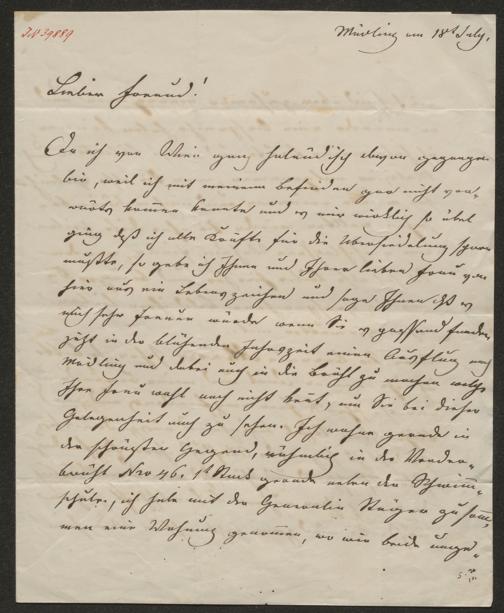 IN 39889
Mödling am 18t July.
Lieber Freund!
Da ich von Wien ganz davon gegangen
bin, weil ich mit meinem Befinden gar nicht vor-
wärts kommen konnte und es mir wirklich so übel
ging daß ich alle Kräfte für die Übersiedelung sparen
mußte, so gebe ich Ihnen und Ihrer lieben Frau von
hier aus ein Lebenszeichen und sage Ihnen daß es
mich sehr freuen würde wenn Sie es passend fänden
jetzt in der blühenden Jahrszeit einen Ausflug nach
Mödling und dabei auch in die Brühl zu machen welche
Ihre Frau wohl noch nicht kent, um Sie bei dieser
Gelegenheit auch zu sehen. Ich wohne gerade in
der schönsten Gegend, nähmlich in der Vorder-
brühl Nro 46. 1t Stock gerade neben der Schwimm-
schule, ich habe mit der Generalin zusam-
men eine Wohnung genommen, wo wir beide unge-